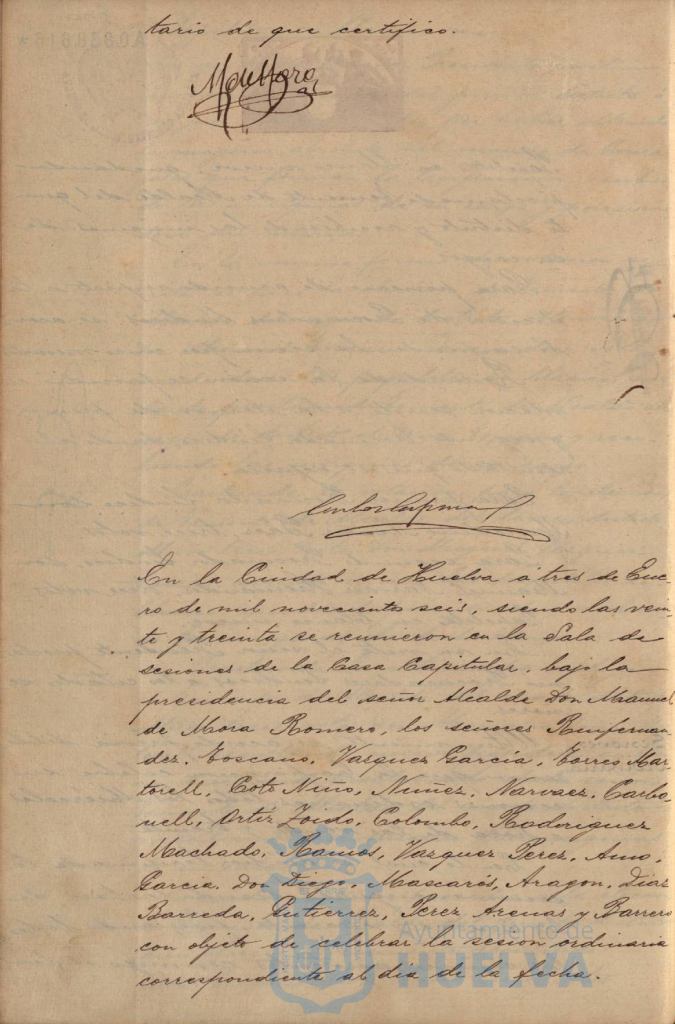 tario de que certifico.
En la Ciudad de Huelva á tres de Ene-
ro de mil novecientos seis, siendo las vein-
te y treinta se reunieron en la Sala de
sesiones de la Casa Capitular, bajo la
presidencia del señor Alcalde Don Manuel
de Mora Romero, los señores
Toscano, Vazquez Garcia, Torres Mar-
torell, Coto Niño, Nuñez, Narvaez, Carbo-
nell, Ortiz Zoido, Colombo, Rodriguez
Machado, Ramos, Vazquez Perez, Amo,
Garcia, Don Diego, Mascarós, Aragon, Diaz
Barreda, Gutierrez, Perez Arenas y Barrero
con objeto de celebrar la sesion ordinaria
correspondiente al dia de la fecha.
Ayuntamiento de
HUELVA